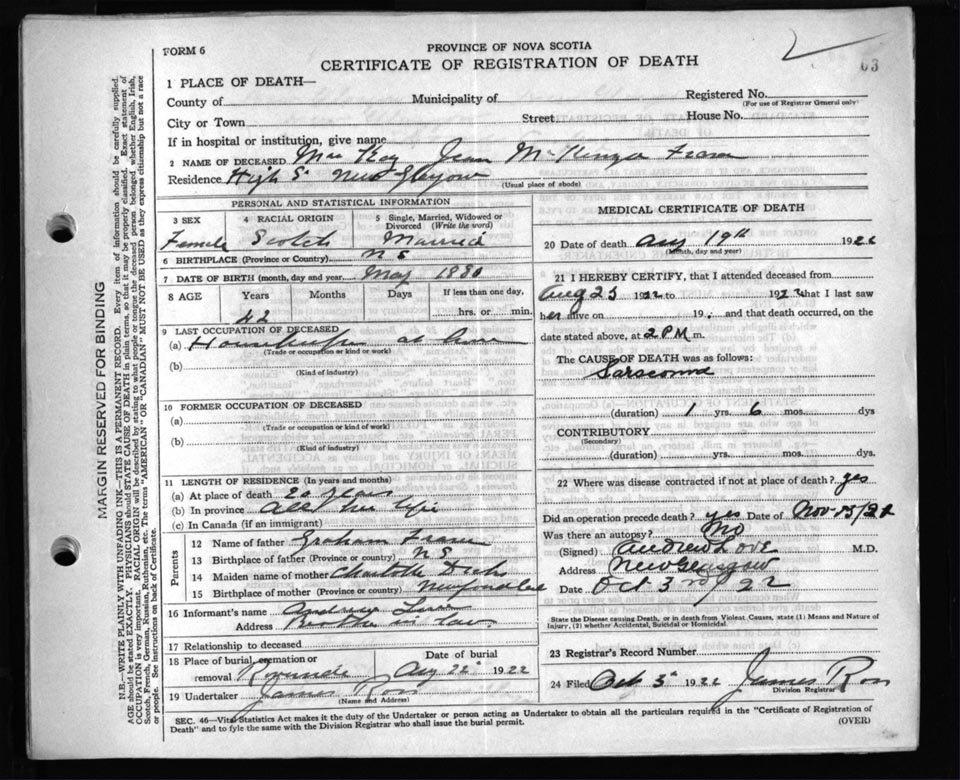 FORM 6
PROVINCE OF NOVA SCOTIA
CERTIFICATE OF REGISTRATION OF DEATH
03
1 PLACE OF DEATH—
County of Municipality of Registered No.
(For use of Registrar General only)
City or Town Street, House No.
If in hospital or institution, give name
2 NAME OF DECEASED Mac Kay Jean McKenzie Fraser
Residence High St New Glasgow
(Usual place of abode)
PERSONAL AND STATISTICAL INFORMATION
3 SEX Female
4 RACIAL ORIGIN Scotch
5 Single, Married, Widowed or Divorced (Write the word) Married
6 BIRTHPLACE (Province or Country) N S
7 DATE OF BIRTH (month, day and year) May 1880
8 AGE Years Months Days If less than one day,
42 hrs. or min.
9 LAST OCCUPATION OF DECEASED
(a) Housekeeper at home
(Trade or occupation or kind or work)
(b)
(Kind of industry)
10 FORMER OCCUPATION OF DECEASED
(a)
(Trade or occupation or kind of work)
(b)
(Kind of industry)
11 LENGTH OF RESIDENCE (In years and months)
(a) At place of death 20 years
(b) In province All her life
(c) In Canada (if an immigrant)
Parents
12 Name of father Graham Fraser
13 Birthplace of father (Province or country) N S
14 Maiden name of mother Charlotte
15 Birthplace of mother (Province or country)
16 Informant's name Andrew Love
Address Brother in law
17 Relationship to deceased
18 Place of burial, cremation or removal
Date of burial Aug 22 1922
19 Undertaker James Ross
(Name and Address)
MEDICAL CERTIFICATE OF DEATH
20 Date of death Aug 19th 1922
(Month, day and year)
21 I HEREBY CERTIFY, that I attended deceased from
Aug 25 1922 to 1922 that I last saw
her alive on 19 . and that death occurred, on
date stated above, at 2 PM m.
The CAUSE OF DEATH was as follows:
Sarscoma
(duration) 1 yrs. 6 mos. dys
CONTRIBUTORY
(Secondary)
(duration) yrs. mos. dys.
22 Where was disease contracted if not at place of death? yes
Did an operation precede death? yes Date of Nov-15/21
Was there an autopsy? No
(Signed) Andrew Love M.D.
Address New Glasgow
Date Oct 3rd / 22
State the Disease causing Death, or in death from Violent Causes, state (1) Means and Nature of
Injury, (2) whether Accidental, Suicidal or Homicidal.
23 Registrar's Record Number
24 Filed Oct 5 1922 James Ross
Division Registrar
SEC. 46—Vital Statistics Act makes it the duty of the Undertaker or person acting as Undertaker to obtain all the particulars required in the "Certificate of Registration of
Death" and to fyle the same with the Division Registrar who shall issue the burial permit.
(OVER)
MARGIN RESERVED FOR BINDING
N.B.—WRITE PLAINLY WITH UNFADING INK—THIS IS A PERMANENT RECORD. Every item of information should be carefully supplied.
AGE should be stated EXACTLY. PHYSICIANS should STATE CAUSE OF DEATH in plain terms, so that it may be properly classified. Exact statement of
OCCUPATION is very important. RACIAL ORIGIN will be described by stating to what people or tongue the deceased person belonged, whether English, Irish,
Scotch, French, German, Russian, Ruthenian, etc. The terms "AMERICAN" OR "CANADIAN" MUST NOT BE USED as they express citizenship but not a race
or people. See instructions on back of Certificate.